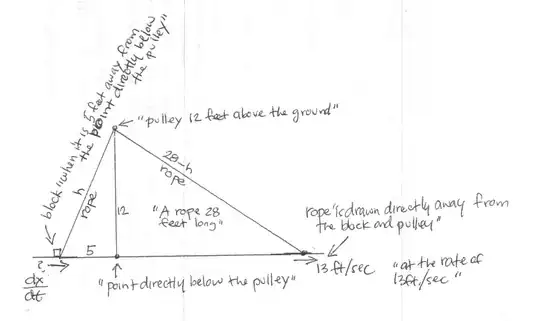 block "when it is 5 feet away from
the point directly below
the pulley"
"pulley 12 feet above the ground"
h
rope
28-h
rope
12
"A rope 28
feet long"
rope "is drawn directly away from
the block and pulley"
5
?
dx
dt
"point directly below the pulley"
13 ft/sec
"at the rate of
13 ft/sec"